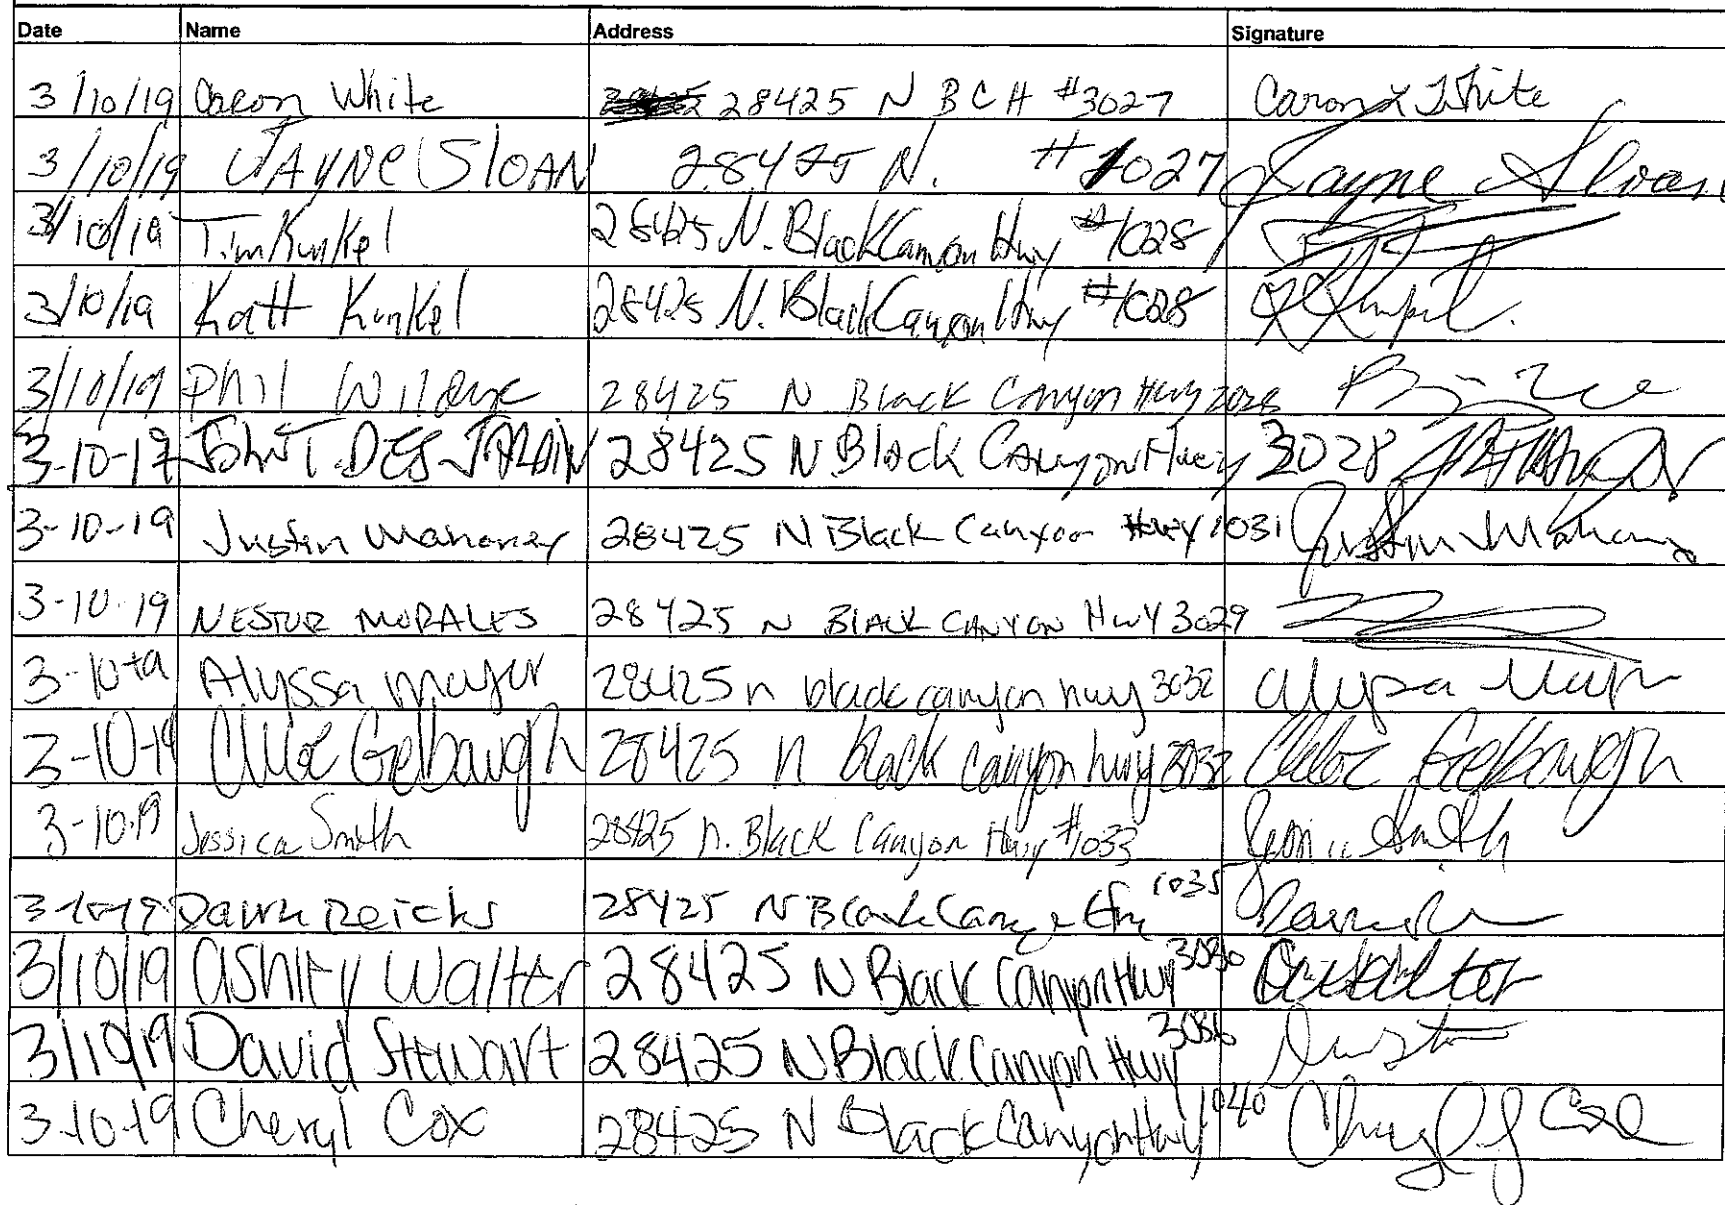 Date Name Address Signature
3/10/19 Caron White 28425 N B C H #3027 Caron L White
3/10/19 JAYNE SLOAN 28425 N. #1027 Jayne Sloan
3/10/19 Tim Kunkel 28425 N. Black Canyon Hwy #1028
3/10/19 Katt Kunkel 28425 N. Black Canyon Hwy #1028
3/10/19 Phil 28425 N Black Canyon Hwy 2028
3-10-19 John T. DES JARDIN 28425 N Black Canyon Hwy 3028
3-10-19 Justin Mahoney 28425 N Black Canyon Hwy 1031 Justin Mahoney
3-10-19 NESTOR MORALES 28425 N BLACK CANYON HWY 3029
3-10-19 Alyssa Mayer 28425 n black canyon hwy 3032 Alyssa
3-10-19 Chloe Gelbaugh 28425 n black canyon hwy 3032 Chloe Gelbaugh
3-10-19 Jessica Smith 28425 N. Black Canyon Hwy #1033 Jessica Smith
3-10-19 Dawn Reicks 28425 N Black Canyon Hwy 1035
3/10/19 Ashley Walter 28425 N Black Canyon Hwy
3/10/19 David Stewart 28425 N Black Canyon Hwy
3-10-19 Cheryl Cox 28425 N Black Canyon Hwy 1040 Cheryl J Cox